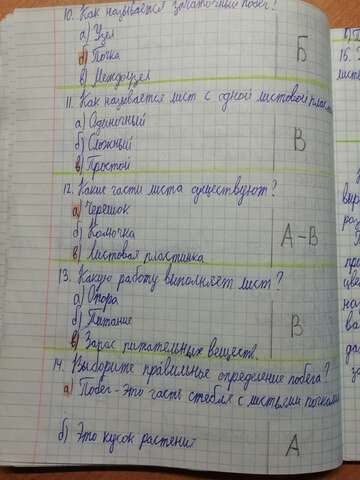 10. Как называется зачаточный побег?
а) Узел
б) Почка
Б
в) Междоузел
11. Как называется лист с одной листовой
а) Одиночный
б) Сложный
В
в) Простой
12. Какие части листа существуют?
а) Черешок
б) Колючка
А-В
в) Листовая пластинка
13. Какую работу выполняет лист?
а) Опора
б) Питание
В
в) Запас питательных веществ.
14. Выберите правильные определение побега?
а) Побег - это часть стебля с листьями почками
б) Это кусок растения
А